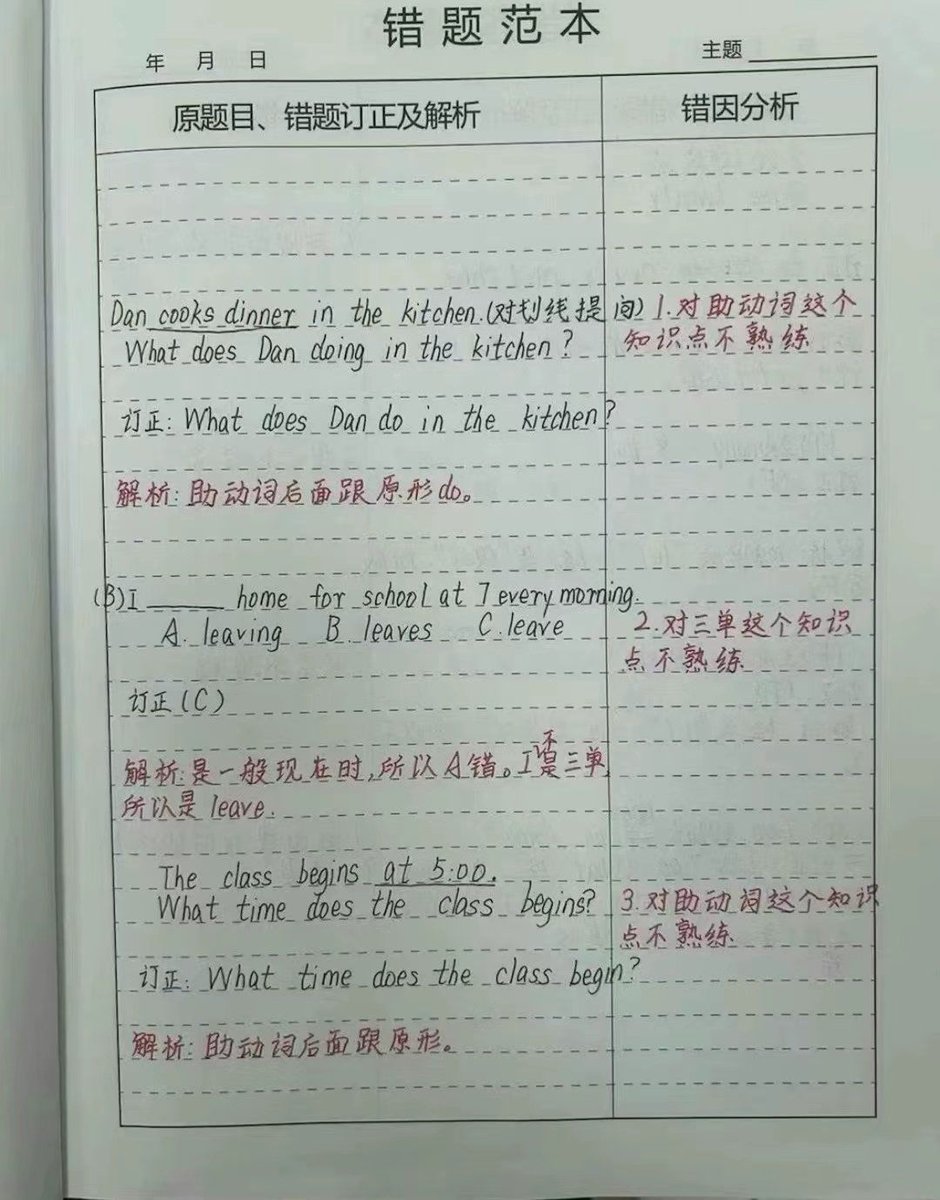 错题范本
年 月 日 主题
原题目、错题订正及解析 错因分析
Dan cooks dinner in the kitchen.(对划线提问) 1.对助动词这个
What does Dan doing in the kitchen? 知识点不熟练
订正: What does Dan do in the kitchen?
解析: 助动词后面跟原形do。
(B)I ______ home for school at 7 every morning.
A. leaving B. leaves C. leave 2.对三单这个知识
点不熟练
订正(C)
解析:是一般现在时,所以A错。I不是三单,
所以是leave.
The class begins at 5:00.
What time does the class begins? 3.对助动词这个知识
点不熟练
订正: What time does the class begin?
解析: 助动词后面跟原形。